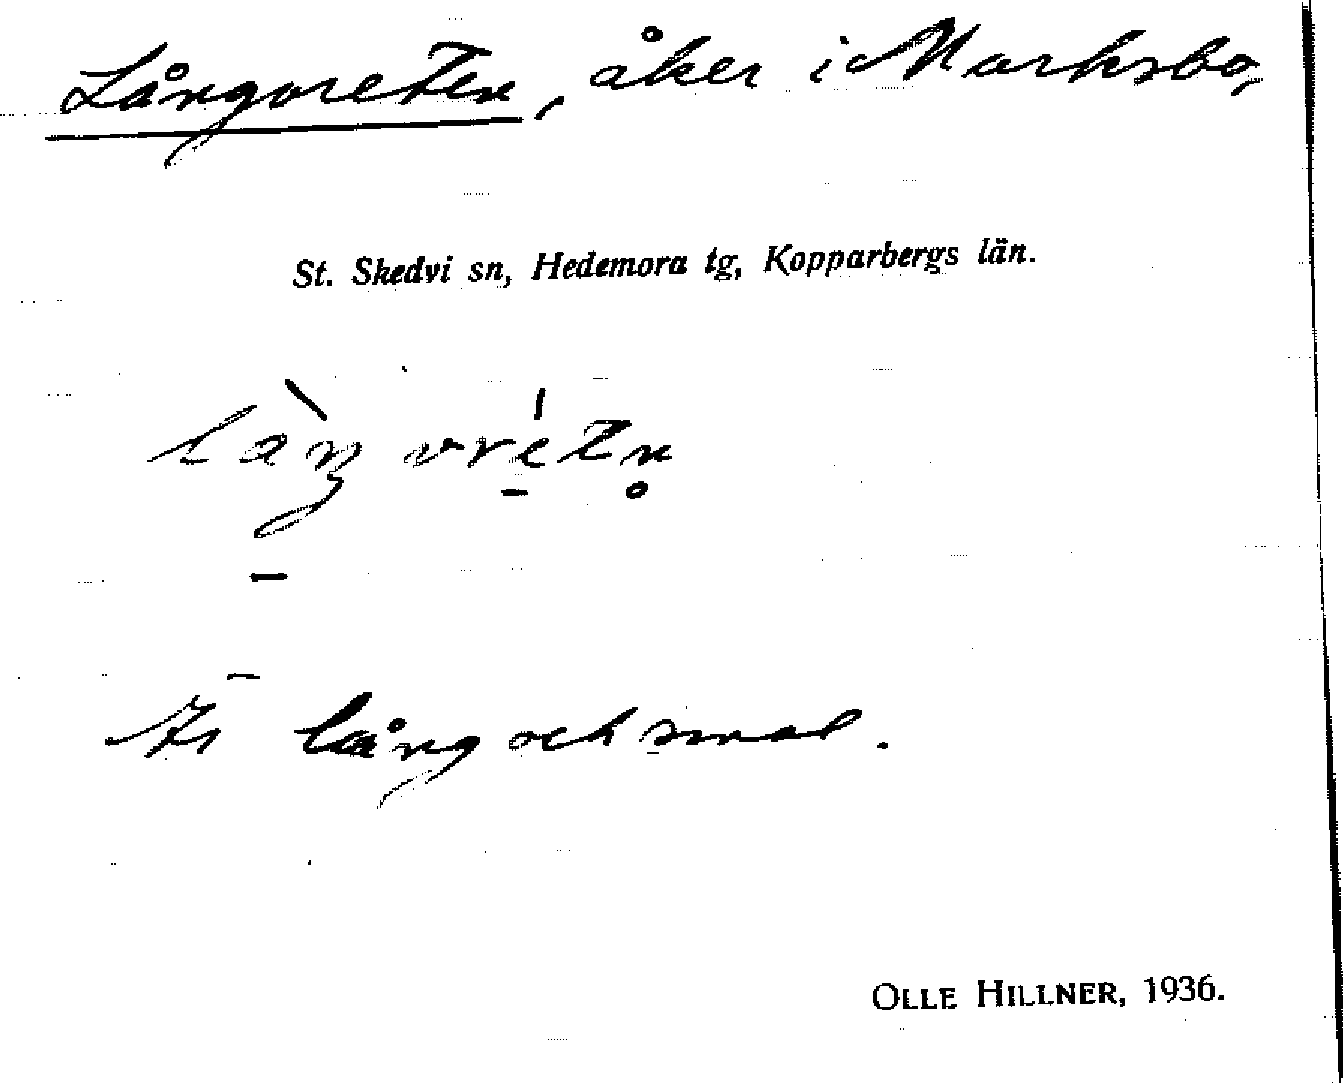 Långvreten, åker i Marksbo,
St. Skedvi sn, Hedemora tg, Kopparbergs län.
làŋvrétn̥
Är lång och smal.
OLLE HILLNER, 1936.